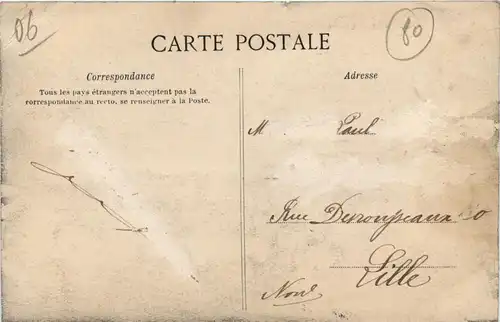 06
80
CARTE POSTALE
Correspondance
Tous les pays étrangers n'acceptent pas la
correspondance au recto, se renseigner à la Poste.
Adresse
M Paul
Rue Desrousseaux
Lille
Nord